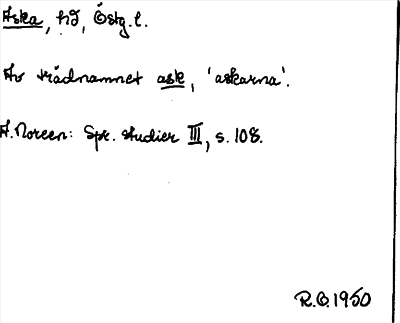 Aska, hd, Östg. l.
Av trädnamnet ask, 'askarna'.
A. Noreen: Spr. studier III, s. 108.
R.O. 1950